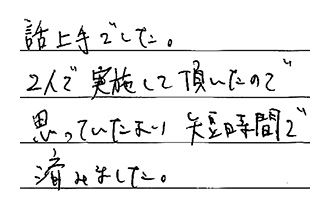 話上手でした。
2人で実施して頂いたので
思っていたより短時間で
済みました。